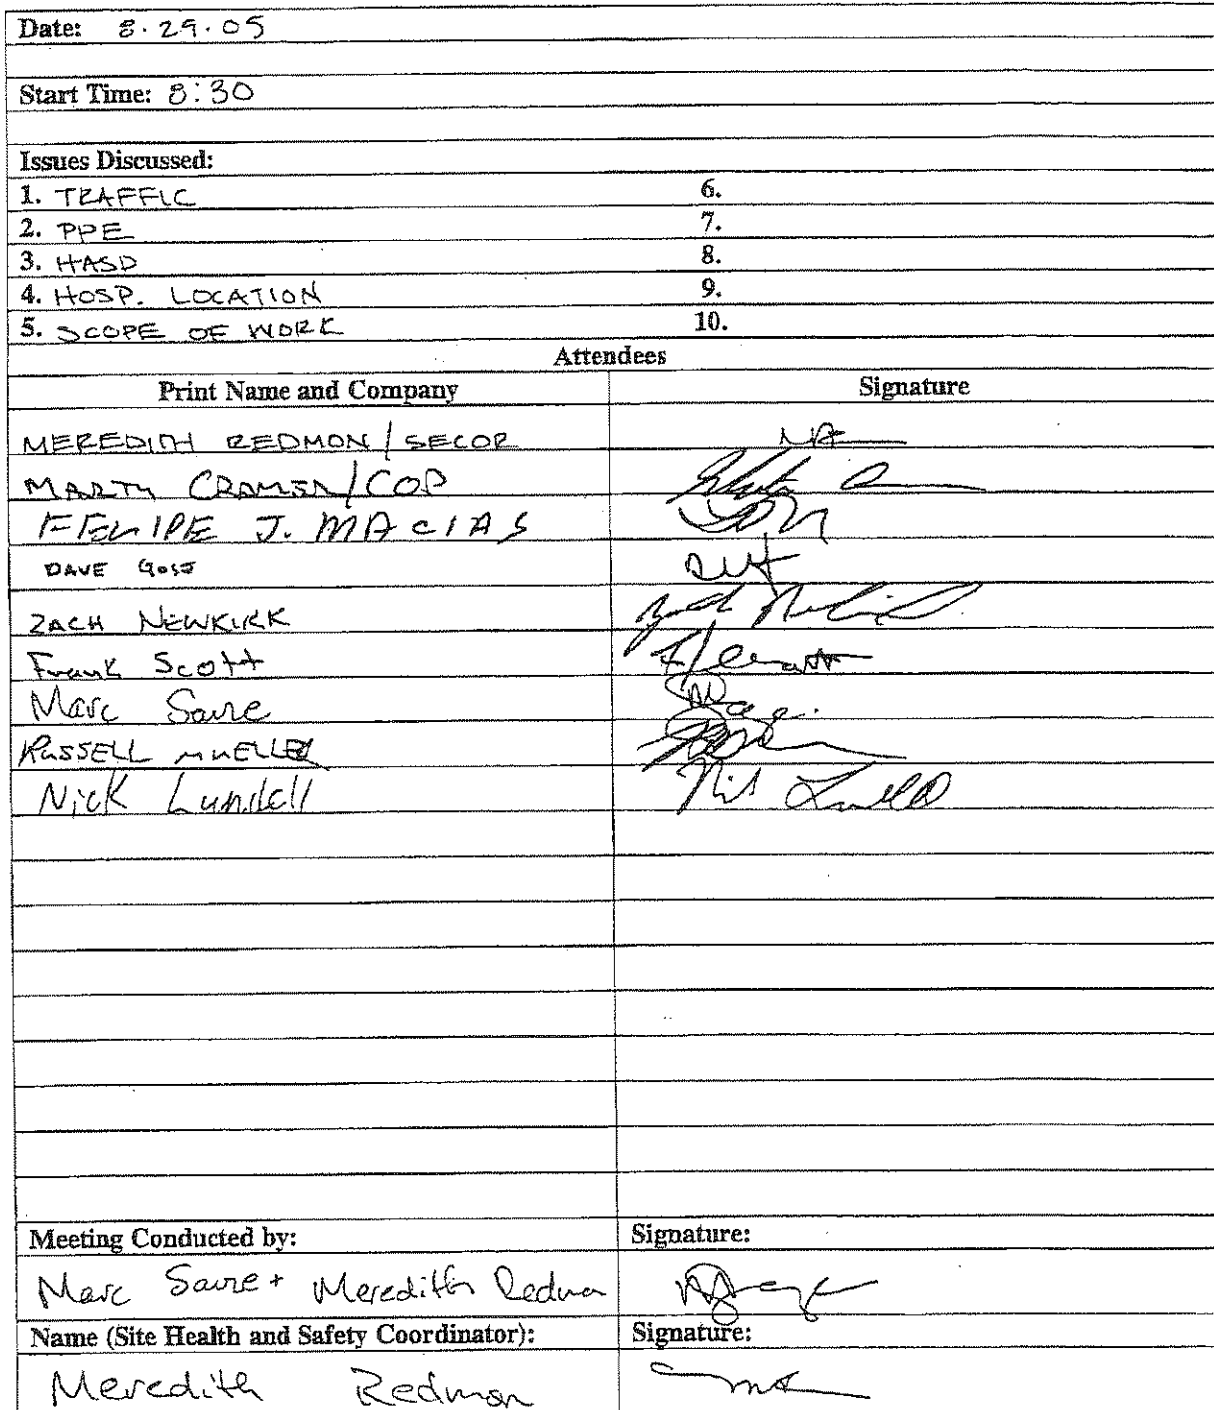 Date: 8.29.05
Start Time: 8:30
Issues Discussed:
1. TRAFFIC 6.
2. PPE 7.
3. HASP 8.
4. HOSP. LOCATION 9.
5. SCOPE OF WORK 10.
Attendees
Print Name and Company Signature
MEREDITH REDMON / SECOR
MARTY CRAMER / COP
FELIPE J. MACIAS
DAVE
ZACH NEWKIRK
Frank Scott
Marc Sauze
RUSSELL MUELLER
Nick Lundell
Meeting Conducted by: Signature:
Marc Sauze + Meredith Redmon
Name (Site Health and Safety Coordinator): Signature:
Meredith Redmon